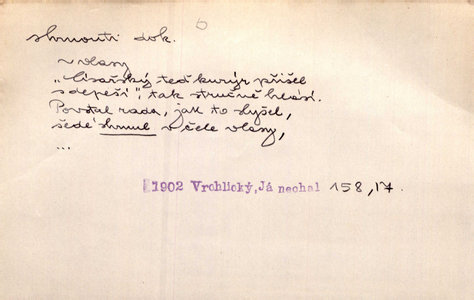 shrnouti dok.
~ vlasy
„Císařský teď kurýr přišel
s depeší“, tak stručně hlásí.
Povstal rada, jak to slyšel,
šedé shrnul v čele vlasy,
...
1902 Vrchlický, Já nechal 158, 17.